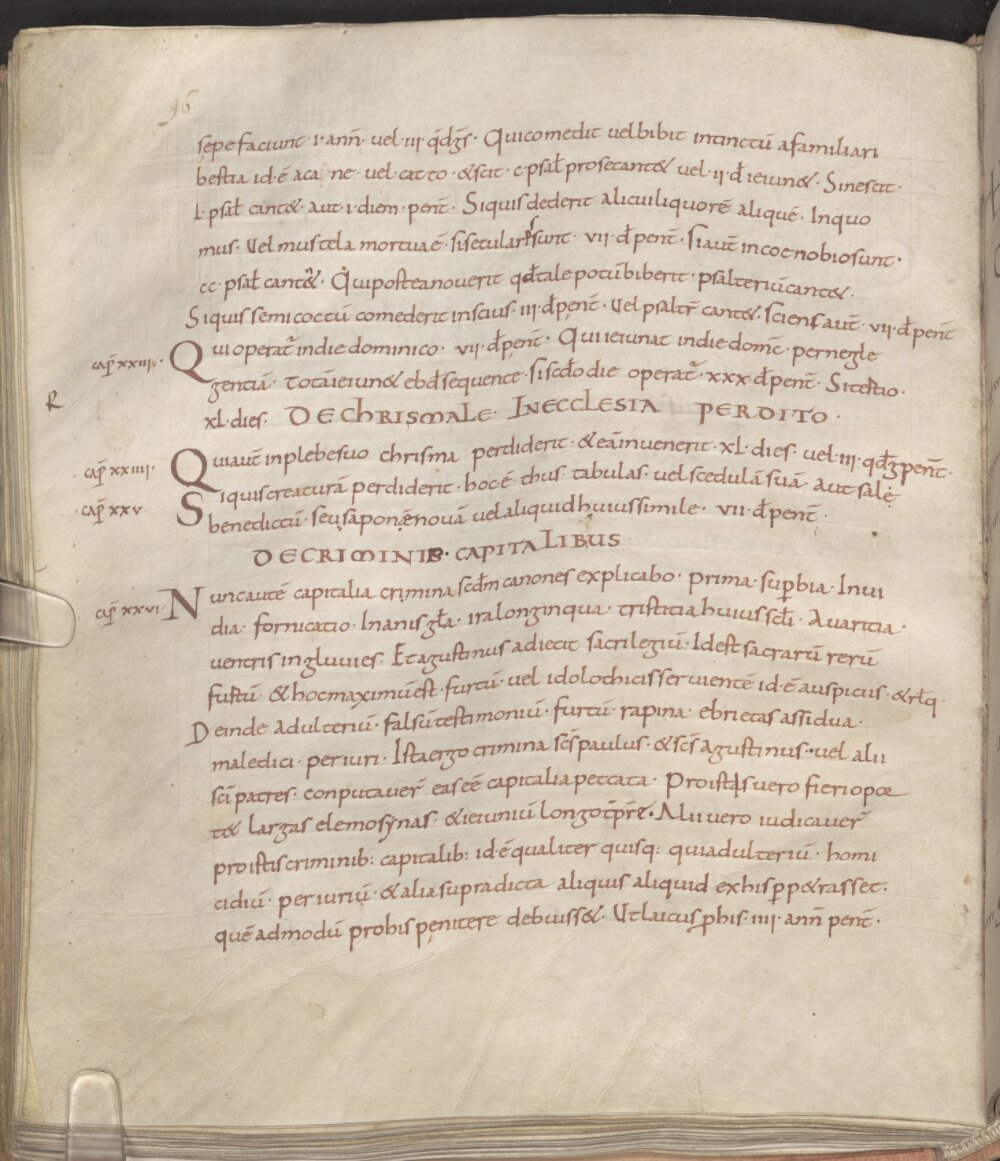 96
sepe faciunt · i · ann̄ · vel · iii · q̄dḡs · Qui comedit vel bibit intinctū a familiari
bestia id · ē a ca ne · vel · catto · & scit · c · psal̄ pro se cant& vel · ii · d̄ ieiun& · Si nescit ·
l · psal̄ cant& · aut · i · diem · penīt · Si quis dederit alicui liquorē aliquē · In quo
mus · Vel mustela mortua ē · si seculares sunt · vii · d̄ penīt · si aut̄ in coenobio sunt ·
cc · psal̄ cant& · Qui postea noverit qd̄ tale potū biberit · psalteriū cant& ·
Si quis semicoctū comederit inscius · iii · d̄ penīt · Vel psaltr̄ cant& · sciens aut̄ · vii · d̄ penīt
cap̄ xxiii ·
Qui operat̄ in die dominico · vii · d̄ penīt · Qui ieiunat in die domīc · per negle
gentiā · totā ieiun& ebd̄ sequente · si scd̄o die operat̄ · xxx · d̄ penīt · Si tertio ·
R
xl · dies · DE ChRISMALE · IN ECCLESIA PERDITO ·
cap̄ xxiiii ·
Qui aut̄ in plebe suo chrisma perdiderit · & eā invenerit · xl · dies · vel · iii · qd̄ḡ penīt ·
cap̄ xxv
Si quis creaturā perdiderit · hoc · ē · thus · tabulas · vel scedulā suā · aut salę
benedictū · seu saponē novā vel aliquid huius simile · vii · d̄ penīt ·
DE CRIMINIB · CAPITALIBUS ·
cap̄ xxvi ·
Nunc autē capitalia crimina scd̄m canones explicabo · prima · sup̄bia · Invi
dia · fornicatio · Inanis gl̄a · ira longinqua · tristitia huius scl̄i · Avaritia ·
ventris ingluvies · Et agustinus adiecit sacrilegiū · Id est sacrarū rerū
furtū · & hoc maximū est · furtū · vel idolothicis servientē id · ē auspiciis · & rl̄q ·
Deinde adulteriū · falsū testimoniū · furtū · rapina · ebrietas assidua ·
maledici · periuri · Ista ergo crimina sc̄s paulus · & sc̄s agustinus · vel alii
sc̄i patres · conputaver̄ ea s eē capitalia peccata · Pro istis vero fieri opor
t& largas elemosynas · & ieiuniū longo tp̄re · Alii vero iudicaver̄
pro istis criminib: capitalib: id · ē qualiter quisq: qui adulteriū · homi
cidiū · periuriū · & alia supra dicta aliquis aliquid ex his p̄p&rasset ·
quēadmodū pro his penitere debuiss& · Ut laicus p̄ his · iiii · ann̄ penīt ·